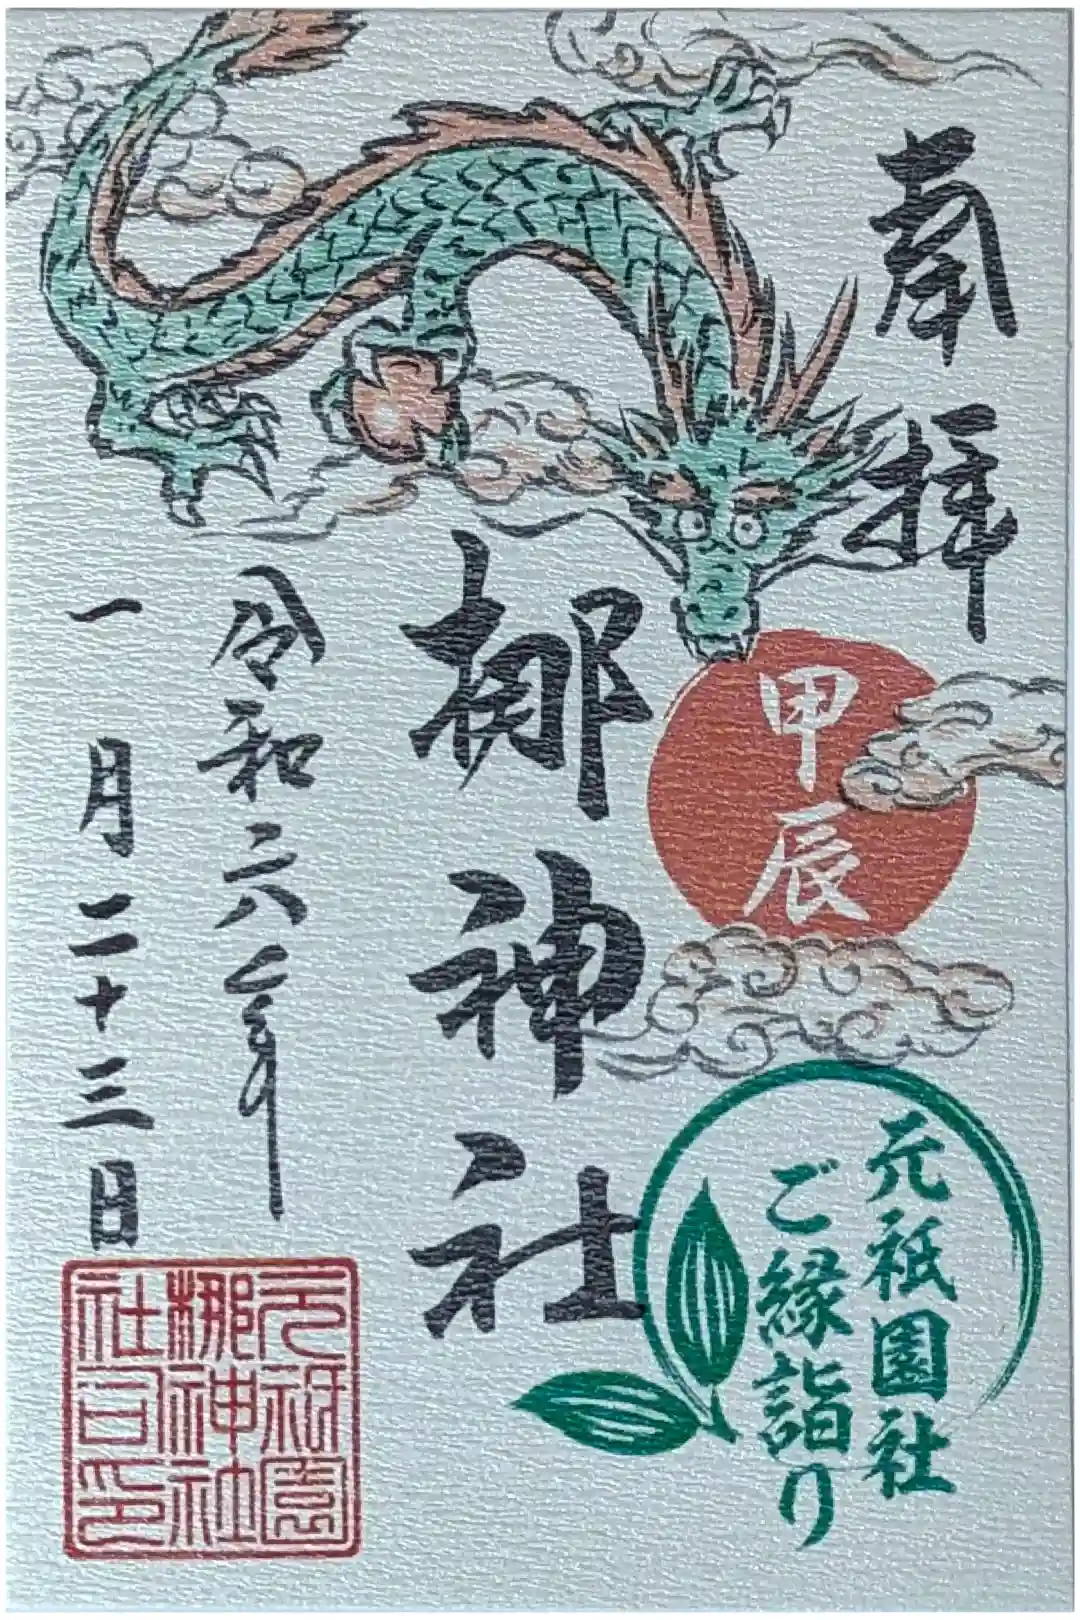 奉拝
甲辰
元祇園社
ご縁詣り
梛神社
令和六年
一月二十三日
元祇園
梛神社
社司印